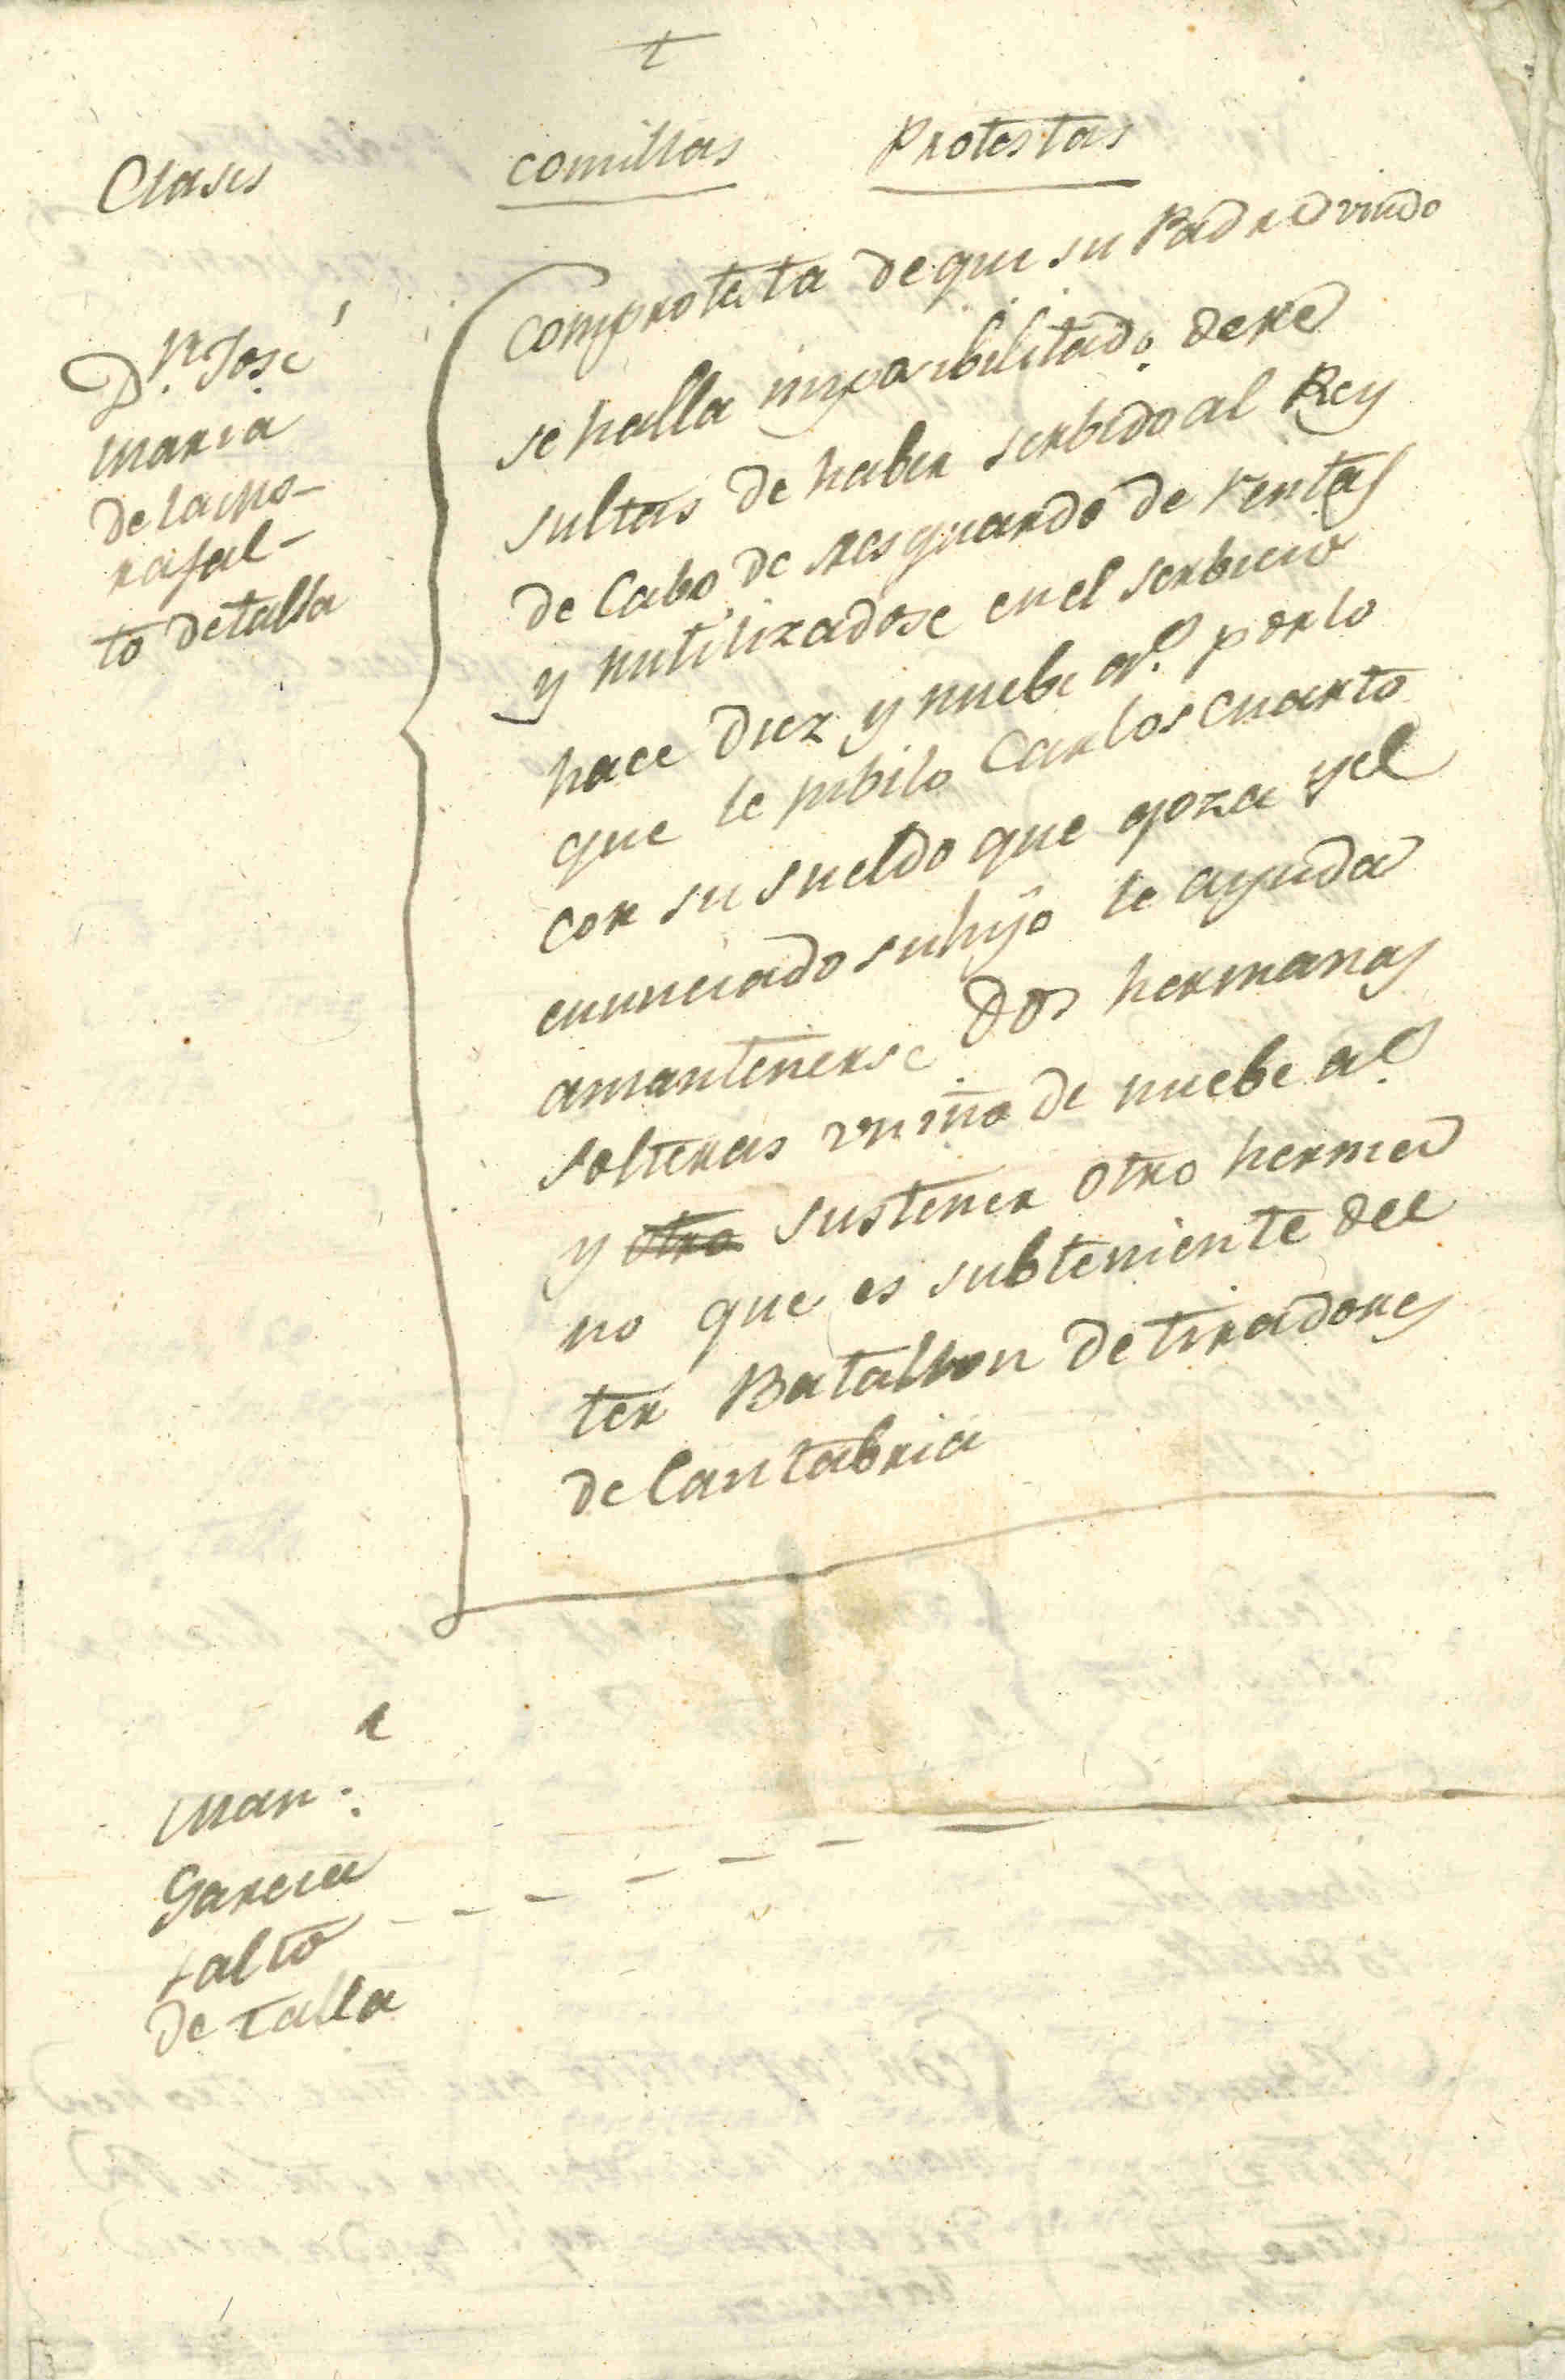 †
Clases comillas Protestas
Dn José
Maria
de la Mo-
ra fal-
to de talla
Comprotesta de que su Padre viudo
se halla imposibilitado de re
sultas de haber serbido al Rey
de Cabo de resguardo de rentas
y nutilizadose en el serbicio
hace diez y nuebe as. por lo
que le jubilo Carlos Cuarto
con su sueldo que goza y el
enunciado su hijo le ayuda
a mantenerse dos hermanas
solteras un niño de nuebe as.
y otro sustener otro herma
no que es subteniente del
ter Batallon de tiradores
de Cantabria
Man.
Garcia
falto
de talla